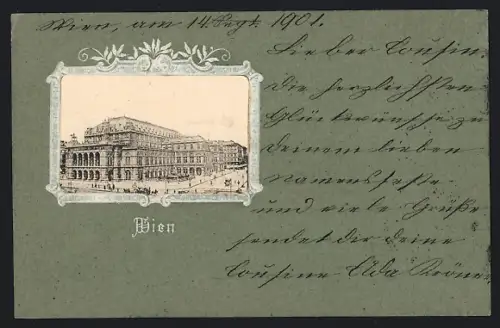 Wien, am 14. Sept. 1901.
Lieber Cousin.
Die herzlichsten
Glückwünsche zu
Deinem lieben
Namensfeste
und viele Grüße
sendet dir deine
Cousine Ada
Wien